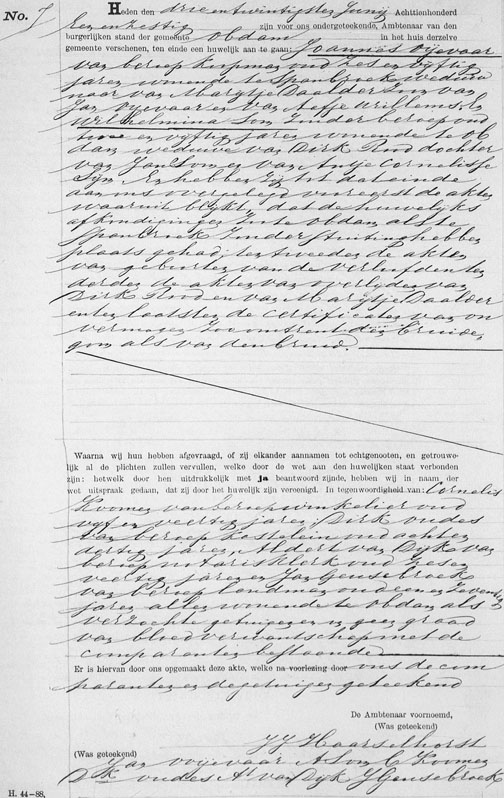 No. 7
Heden den drie en twintigsten Junij Achttienhonderd
Een en zestig zijn voor ons ondergeteekende, Ambtenaar van den
burgerlijken stand der gemeente Obdam in het huis derzelve
gemeente verschenen, ten einde een huwelijk aan te gaan: Joannes Vijvaar
van beroep koopman oud zes en vijftig
jaren wonende te Spanbroek weduwe
naar van Margtje Daalder Zoon van
Jan Vijvaar en van Aefje Willems. En
Wilhelmina Som Zonder beroep oud
twee en vijftig jaren wonende te Ob
dam weduwe van Dirk Rood dochter
van Jan Som en van Antje Cornelisse
Sijm En hebben zij tot dat einde
aan ons overgelegd vooreerst de akten
waaruit blijkt, dat de huwelijks
afkondigingen zoo te Obdam als te
Spanbroek Zonder stuiting hebben
plaats gehad, ten tweede de akten
van geboorten van de verloofden ten
derde de akten van overlyden van
Dirk Rood en van Margtje Daalder
en ten laatsten de certificaten van on
vermogen zoo omtrent den bruide
gom als van den bruid.
Waarna wij hun hebben afgevraagd, of zij elkander aannamen tot echtgenooten, en getrouwe-
lijk al de plichten zullen vervullen, welke door de wet aan den huwelijken staat verbonden
zijn: hetwelk door hen uitdrukkelijk met ja beantwoord zijnde, hebben wij in naam der
wet uitspraak gedaan, dat zij door het huwelijk zijn vereenigd. In tegenwoordigheid van: Cornelis
Koomen van beroep winkelier oud
vyf en veertig jaren, Dirk Oudes
van beroep kastelein oud acht en
dertig jaren, Aldert van Dyk van
beroep notarisklerk oud zes en
veertig jaren en Jan Gensebroek
van beroep landman oud een en zeventig
jaren allen wonende te Obdam als
verzochte getuigen in geen graad
van bloedverwantschap met de
comparanten bestaande
Er is hiervan door ons opgemaakt deze akte, welke na voorlezing door ons de com
paranten en de getuigen geteekend
De Ambtenaar voornoemd,
(Was geteekend)
JJ Haarselhorst
(Was geteekend)
Jan Vijvaar A Som C Koomen
Dk Oudes At van Dyk J Gensebroek
H. 44-88.